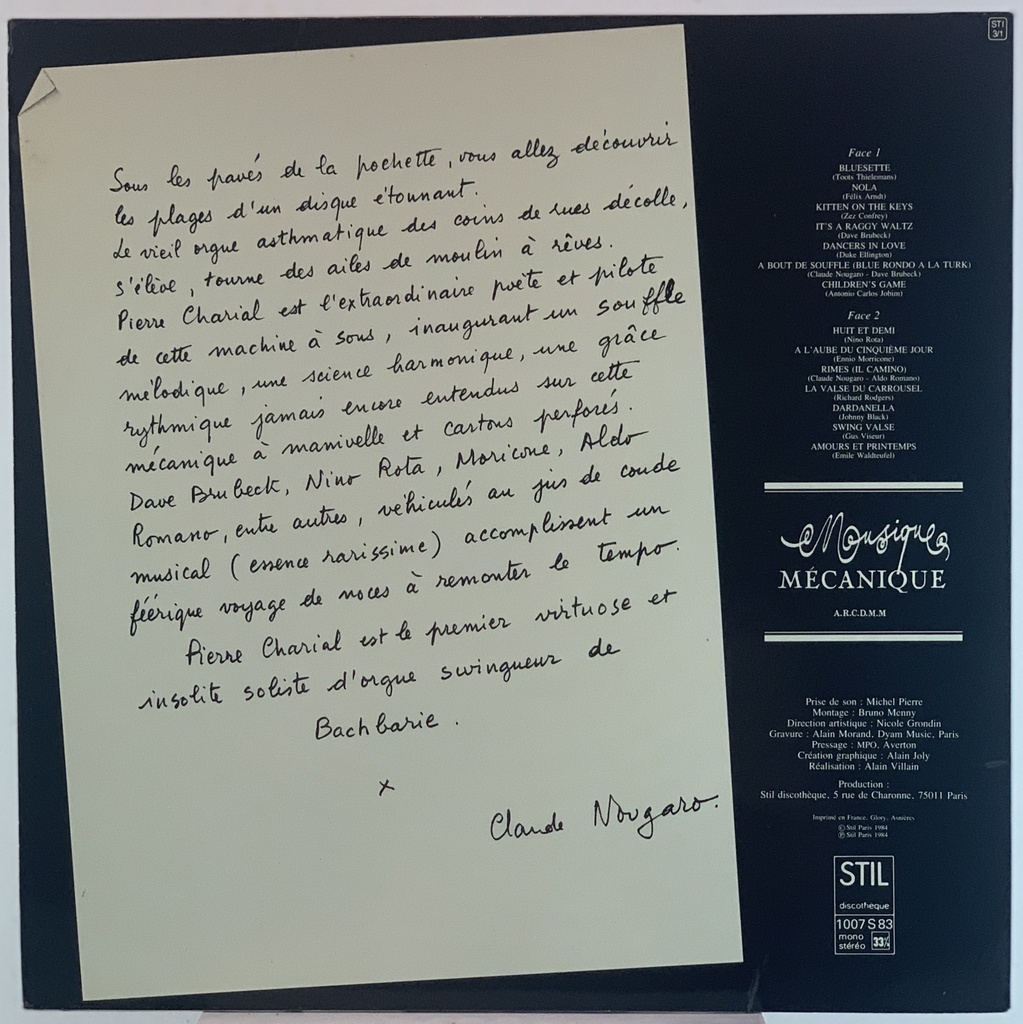 Sous les pavés de la pochette, vous allez découvrir
les plages d'un disque étonnant.
Le vieil orgue asthmatique des coins de rues décolle,
s'élève, tourne des ailes de moulin à rêves.
Pierre Charial est l'extraordinaire poète et pilote
de cette machine à sons, inaugurant un souffle
mélodique, une science harmonique, une grâce
rythmique jamais encore entendus sur cette
mécanique à manivelle et cartons perforés.
Dave Brubeck, Nino Rota, Moricone, Aldo
Romano, entre autres, véhiculés au jus de coude
musical (essence rarissime) accomplissent un
féérique voyage de noces à remonter le tempo.
Pierre Charial est le premier virtuose et
insolite soliste d'orgue swingueur de
Bachbarie.
x
Claude Nougaro.
STI
3/1
Face 1
BLUESETTE
(Toots Thielemans)
NOLA
(Félix Arndt)
KITTEN ON THE KEYS
(Zez Confrey)
IT'S A RAGGY WALTZ
(Dave Brubeck)
DANCERS IN LOVE
(Duke Ellington)
A BOUT DE SOUFFLE (BLUE RONDO A LA TURK)
(Claude Nougaro - Dave Brubeck)
CHILDREN'S GAME
(Antonio Carlos Jobim)
Face 2
HUIT ET DEMI
(Nino Rota)
A L'AUBE DU CINQUIÈME JOUR
(Ennio Morricone)
RIMES (IL CAMINO)
(Claude Nougaro - Aldo Romano)
LA VALSE DU CARROUSEL
(Richard Rodgers)
DARDANELLA
(Johnny Black)
SWING VALSE
(Gus Viseur)
AMOURS ET PRINTEMPS
(Emile Waldteufel)
Musique
MÉCANIQUE
A.R.C.D.M.M
Prise de son : Michel Pierre
Montage : Bruno Menny
Direction artistique : Nicole Grondin
Gravure : Alain Morand, Dyam Music, Paris
Pressage : MPO, Averton
Création graphique : Alain Joly
Réalisation : Alain Villain
Production :
Stil discothèque, 5 rue de Charonne, 75011 Paris
Imprimé en France, Glory, Asnières
© Stil Paris 1984
℗ Stil Paris 1984
STIL
discothèque
1007 S 83
mono
stéréo
33⅓